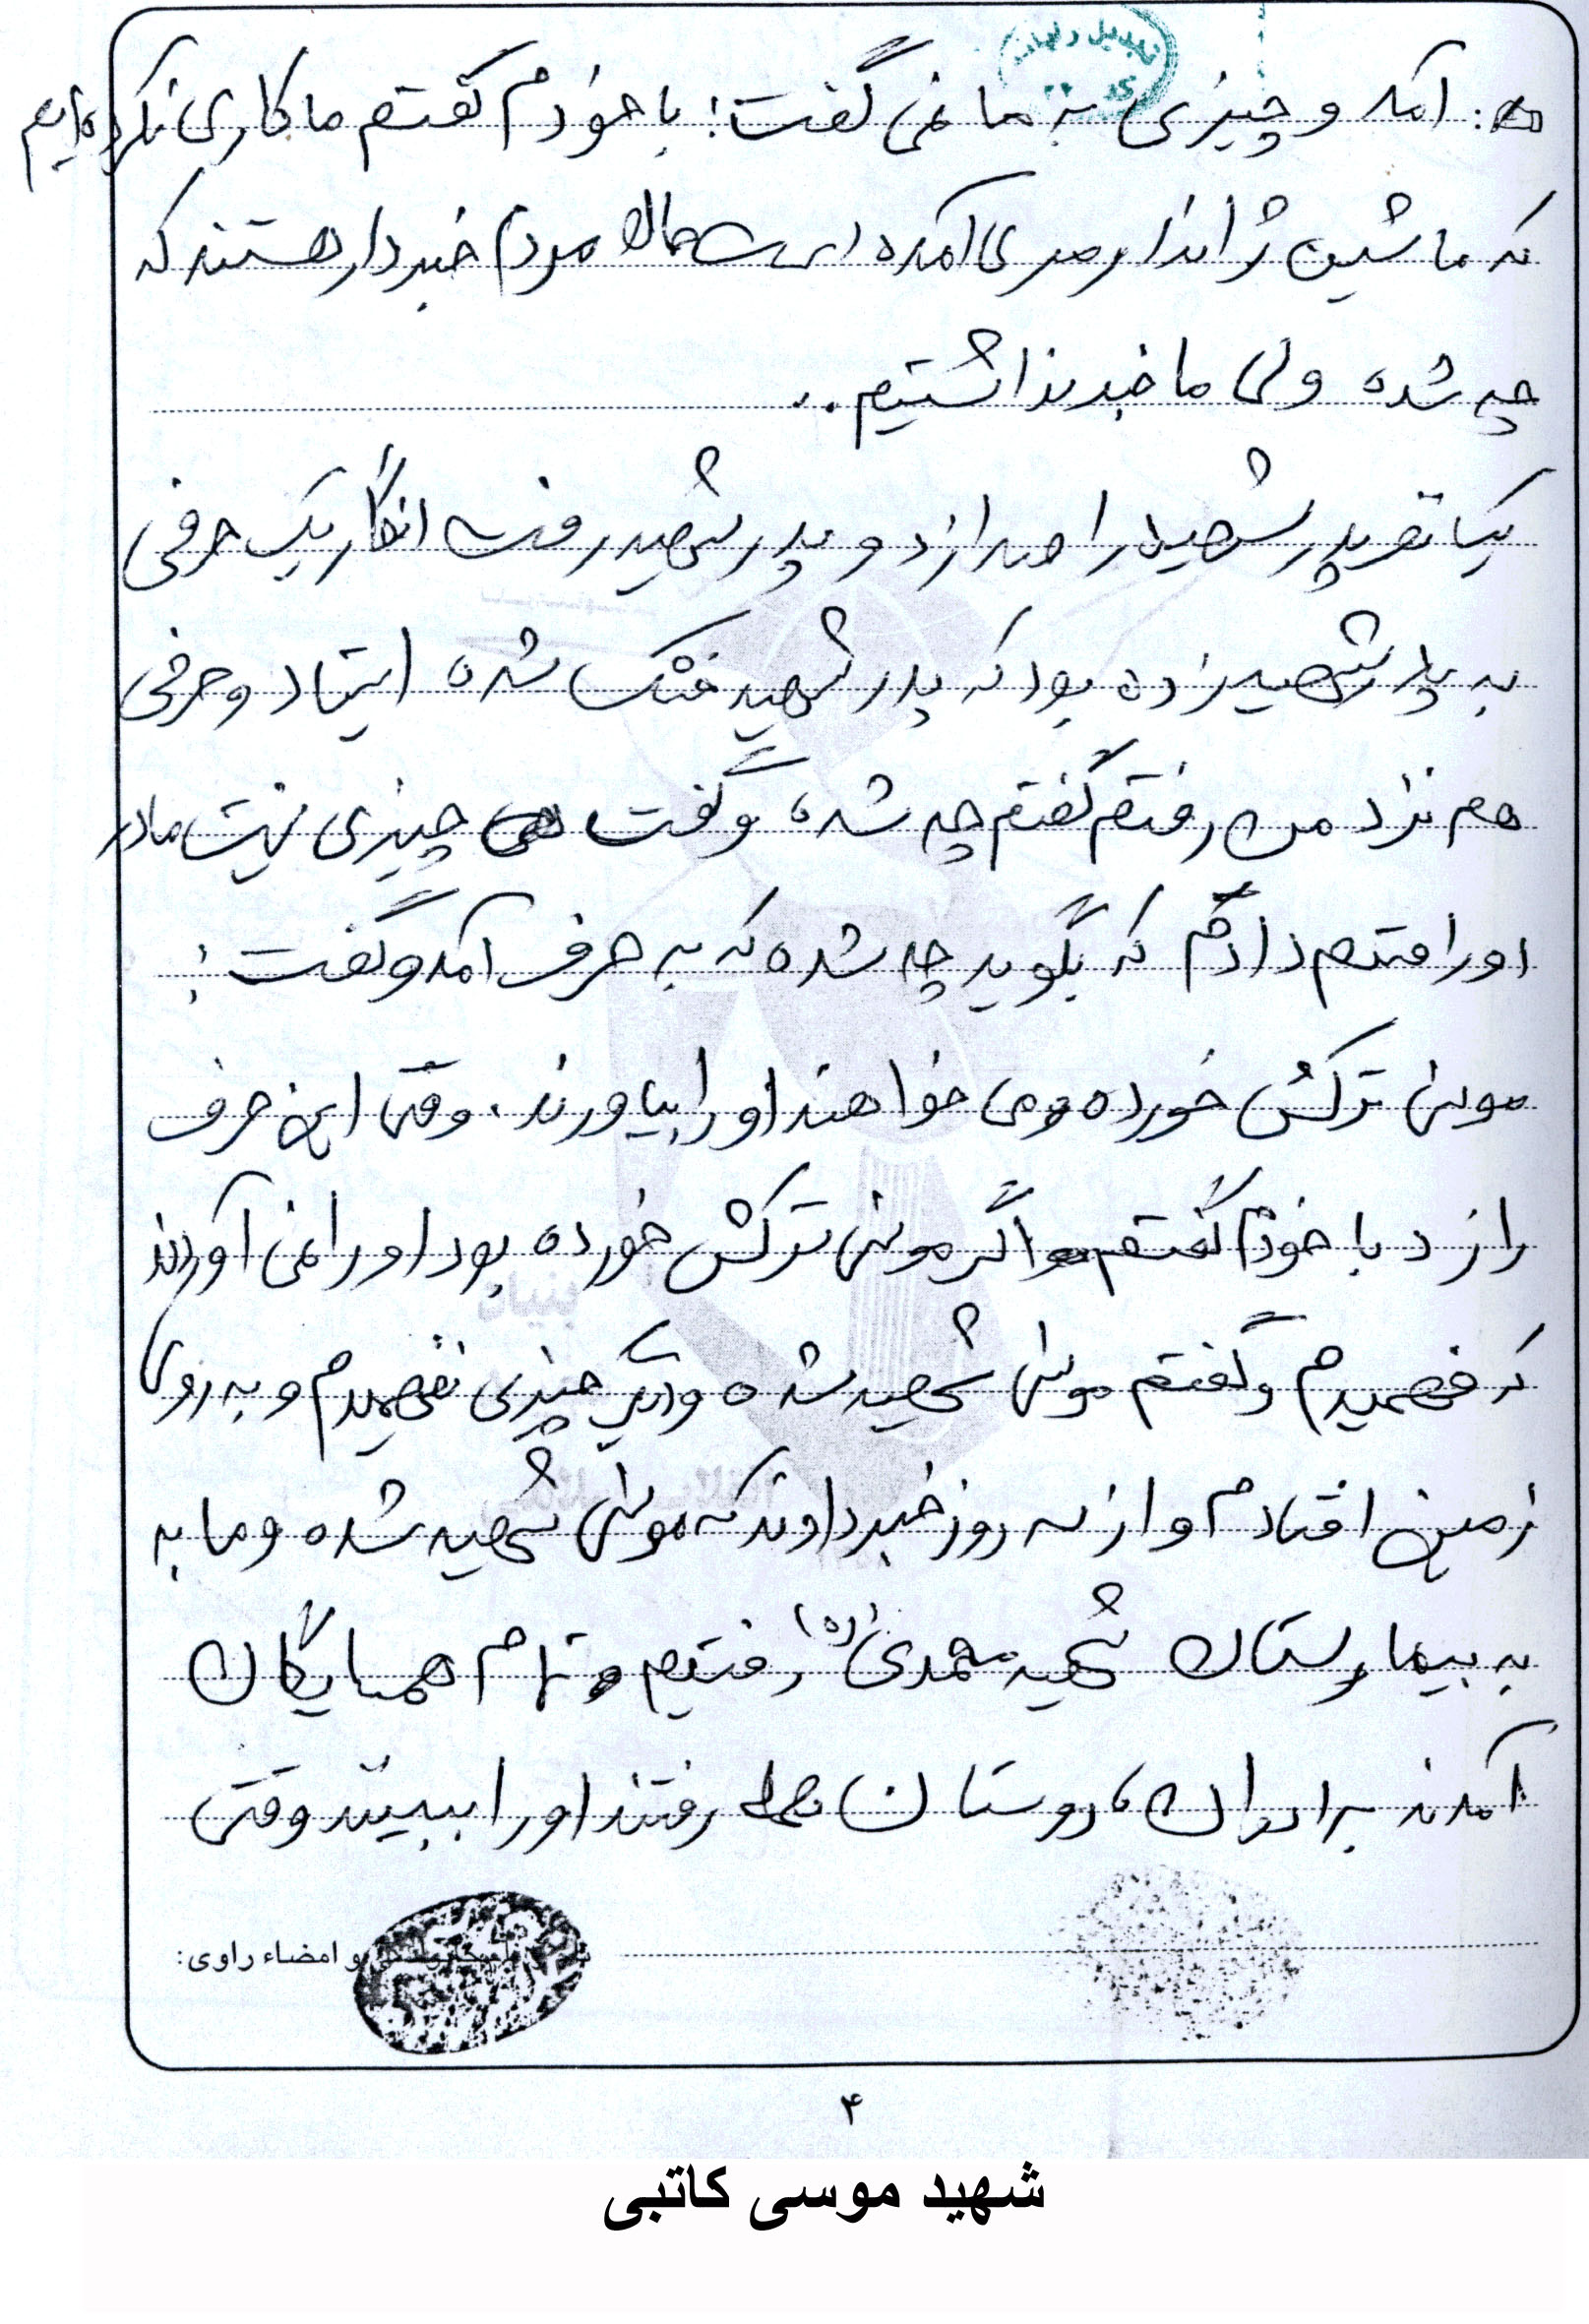 آمد و چیزی به ما نمی گفت: با خودم گفتم ما کاری نکرده ایم
که ماشین ژاندارمری آمده است مردم خبردار هستند که
چه شده ولی ما خبر نداشتیم..
یکنفر پدر شهید را صدا زد و پدر شهید رفت انگار یک حرفی
به پدر شهید زده بود که پدر شهید خشک شده ایستاد و حرفی
هم نزد من رفتم گفتم چه شده، و گفت چیزی نیست مادر
او را قسم دادم که بگوید چه شده که به حرف آمد و گفت:
موسی ترکش خورده و می خواهند او را بیاورند. وقتی این حرف
را زد با خودم گفتم اگر موسی ترکش خورده بود او را نمی آوردند
که فهمیدم و گفتم موسی شهید شده و دیگر چیزی نفهمیدم و به روی
زمین افتادم و از سه روز خبر دادند که موسی شهید شده و ما به
به بیمارستان شهید محمدی (ره) رفتیم و تمام همسایگان
آمدند برادران، دوستان همه رفتند او را ببینند وقتی
و امضاء راوی:
۴
شهید موسی کاتبی